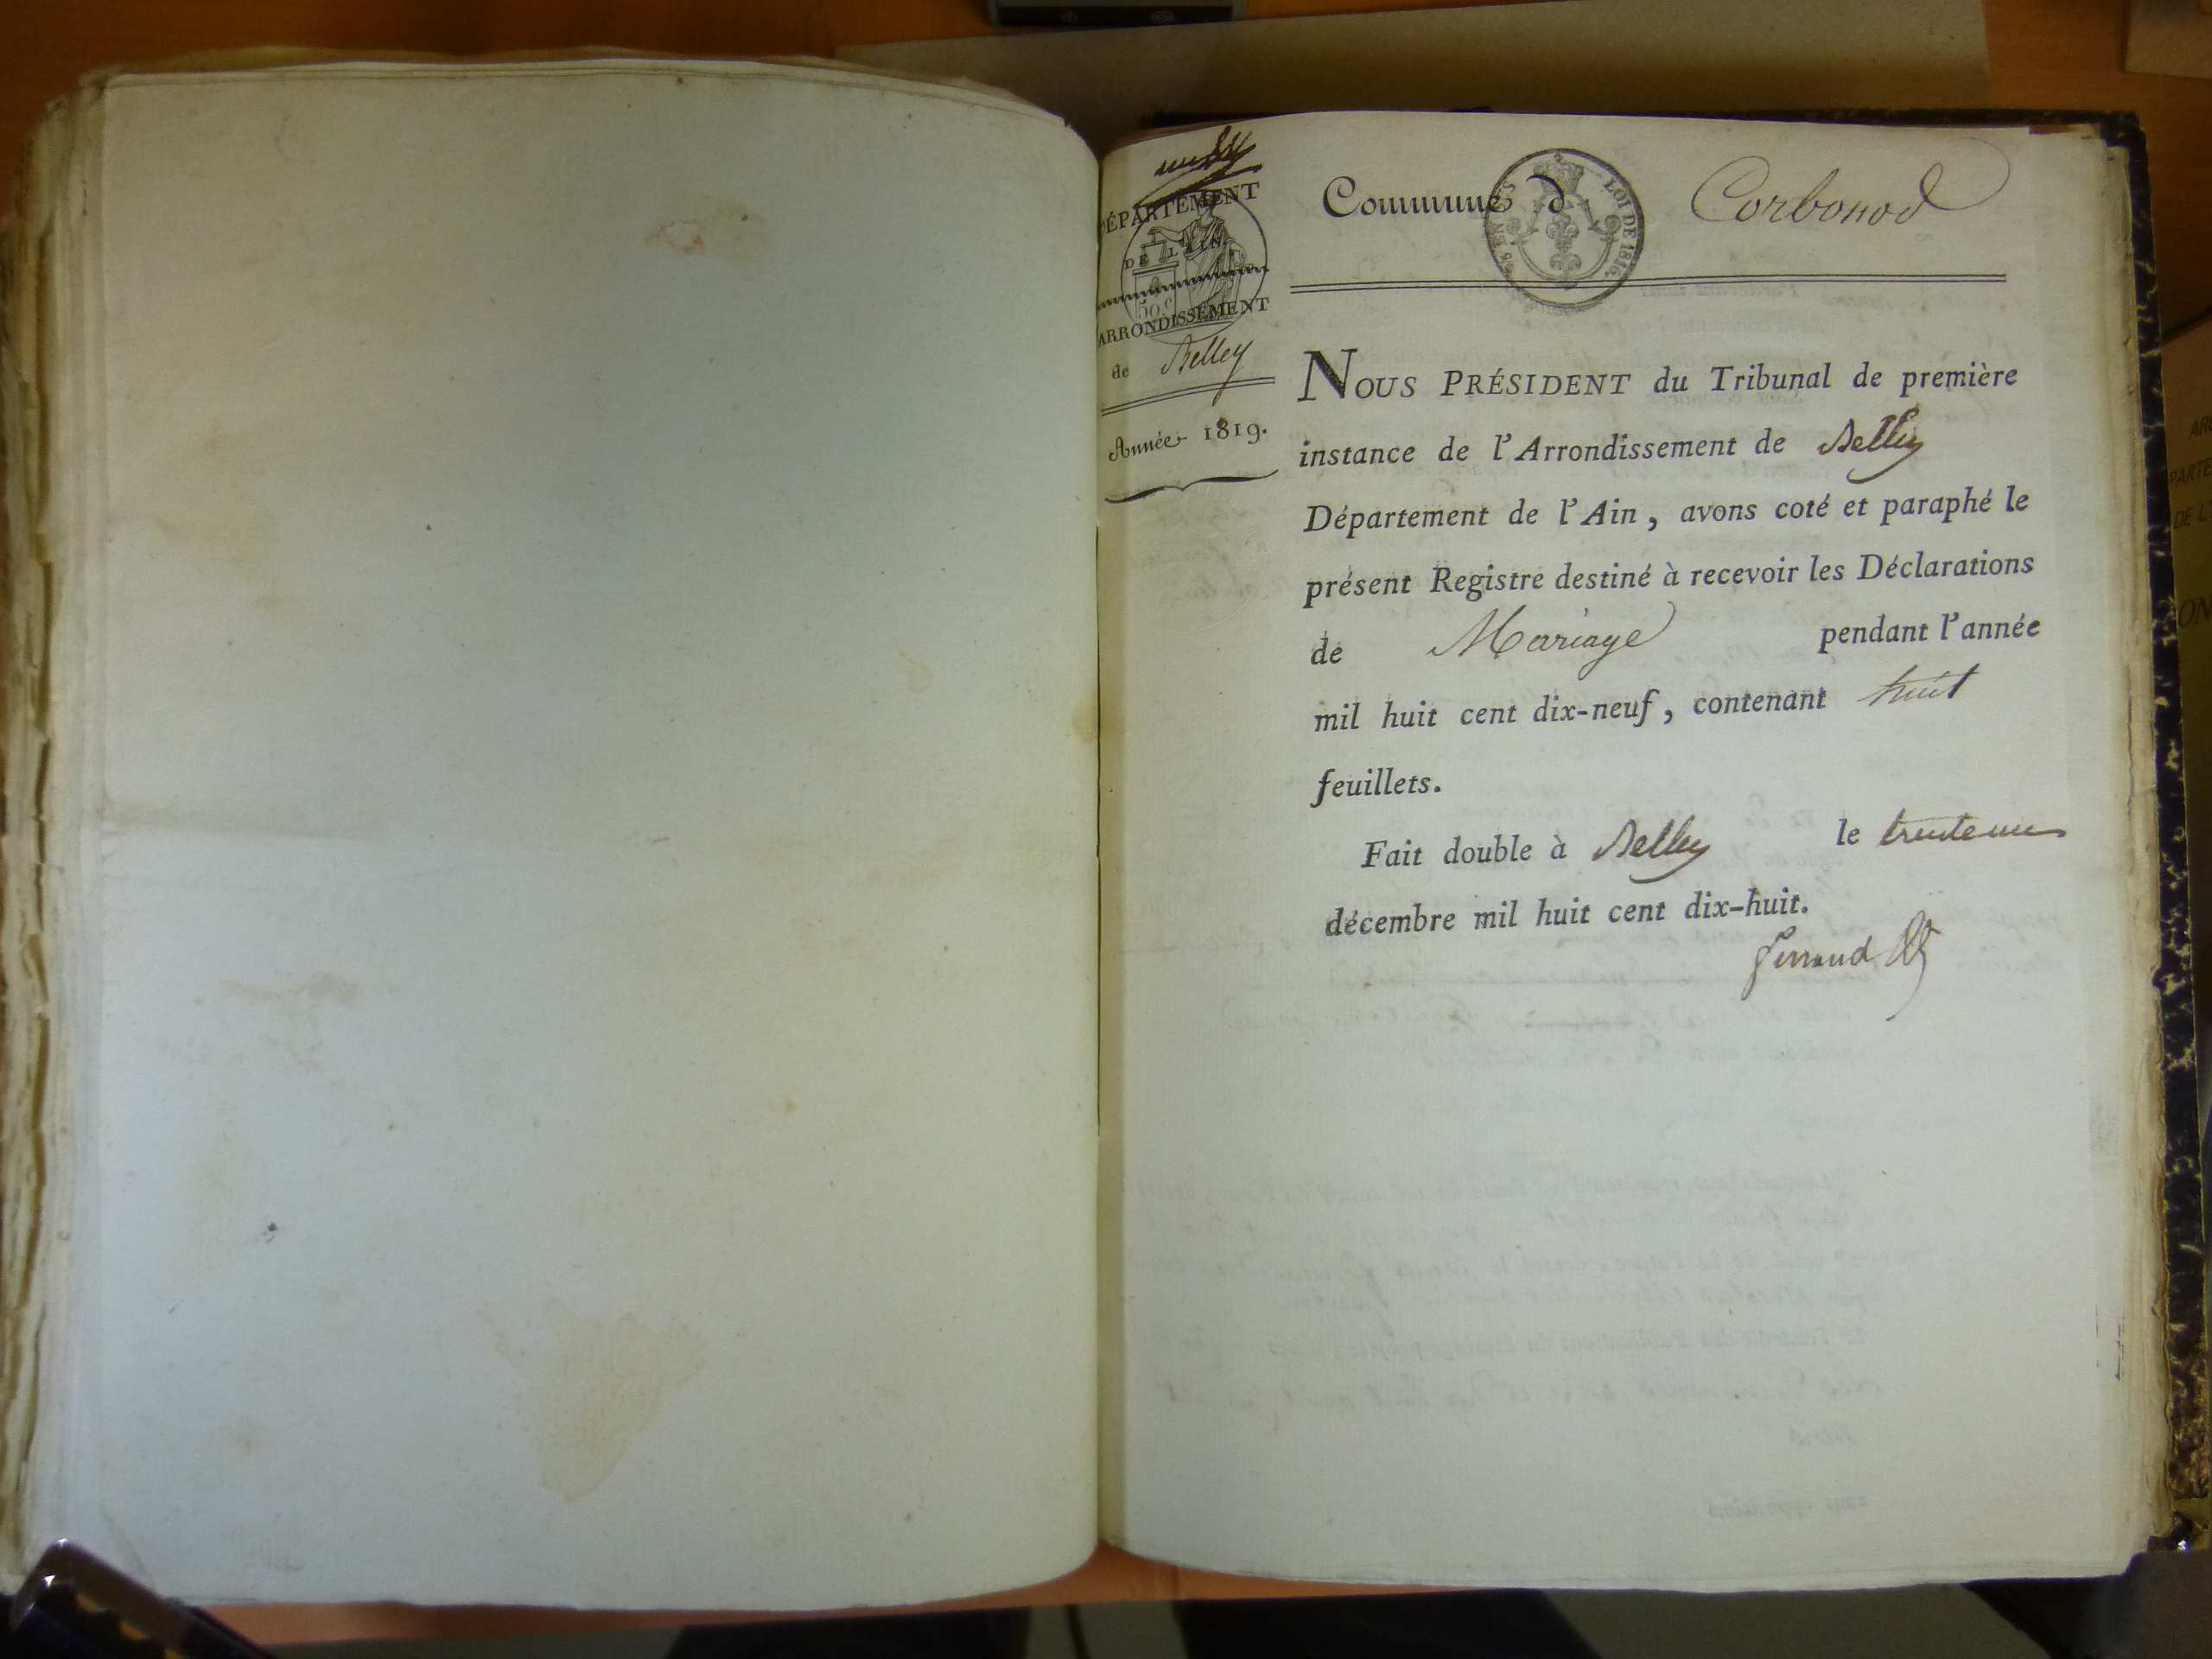 DÉPARTEMENT
DE L'AIN.
50 c
ARRONDISSEMENT
de Belley
Année 1819.
Commune d Corbonod
LOI DE 1816.
NOUS PRÉSIDENT du Tribunal de première
instance de l'Arrondissement de Belley
Département de l'Ain, avons coté et paraphé le
présent Registre destiné à recevoir les Déclarations
de Mariage pendant l'année
mil huit cent dix-neuf, contenant huit
feuillets.
Fait double à Belley le trente un
décembre mil huit cent dix-huit.